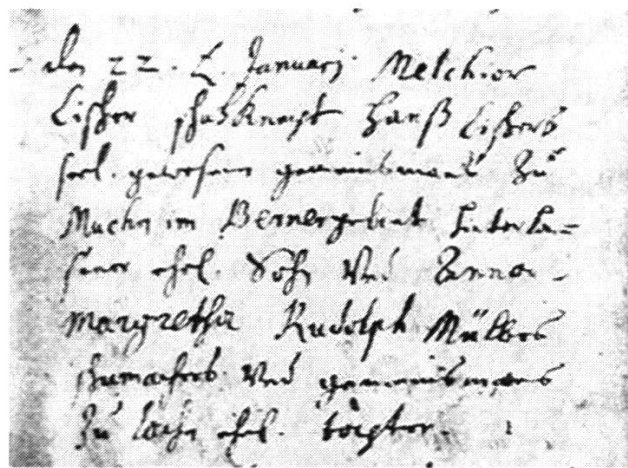 den 22. Januarj Melchior
Lißker schaffknecht Hanß Lißkers
seel. gewesenen gemeinsmans zu
Muchn im Bernergebiet hinterla=
sener ehel. Sohn Und Anna
Margretha Rudolph Müllers
schumachers Und gemeinsmans
zu ehel. tochter.